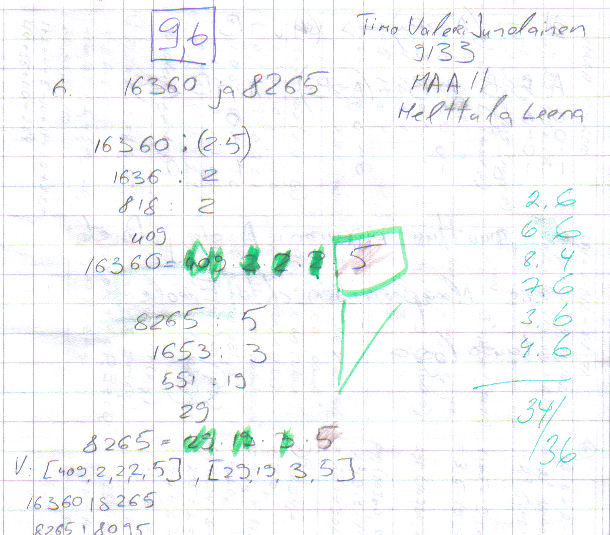 9,6
Timo Valeri Junolainen
9133
MAA 11
Helttula Leena
6. 16360 ja 8265
16360 : (2·5)
1636 : 2
818 : 2
409
16360 = 409 · 2 · 2 · 2 · 5
8265 : 5
1653 : 3
551 : 19
29
8265 = 29 · 19 · 3 · 5
V: [409,2,2,2,5], [29,19,3,5]
16360 : 8265
8265 : 8095
2. 6
6. 6
8. 4
7. 6
3. 6
4. 6
34/
/36